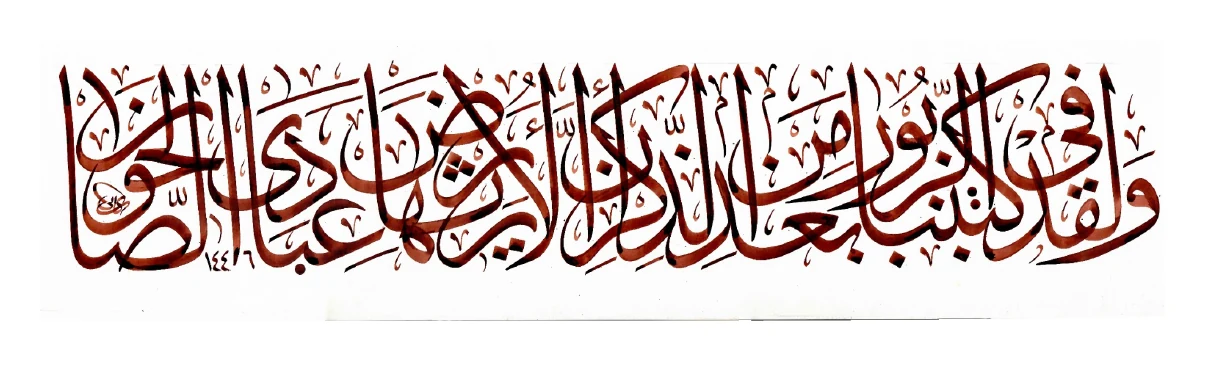 وَلَقَدْ كَتَبْنَا فِي الزَّبُورِ مِنْ بَعْدِ الذِّكْرِ أَنَّ الْأَرْضَ يَرِثُهَا عِبَادِيَ الصَّالِحُونَ
١٤٤٦